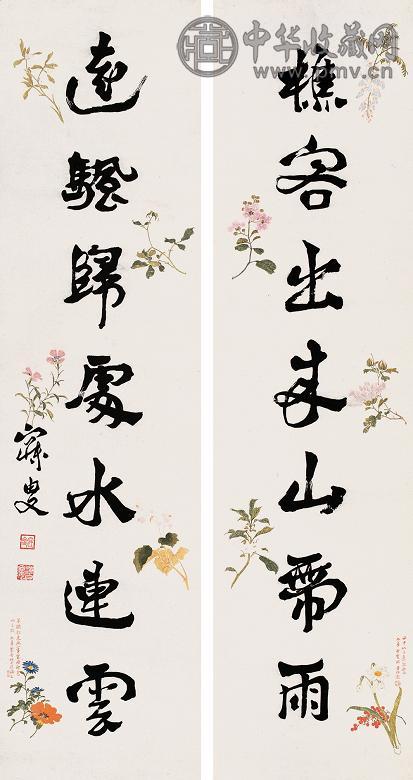 中华收藏网
www.pmv.cn
樵客出來山帶雨
遠颿歸處水連雲
寐叟